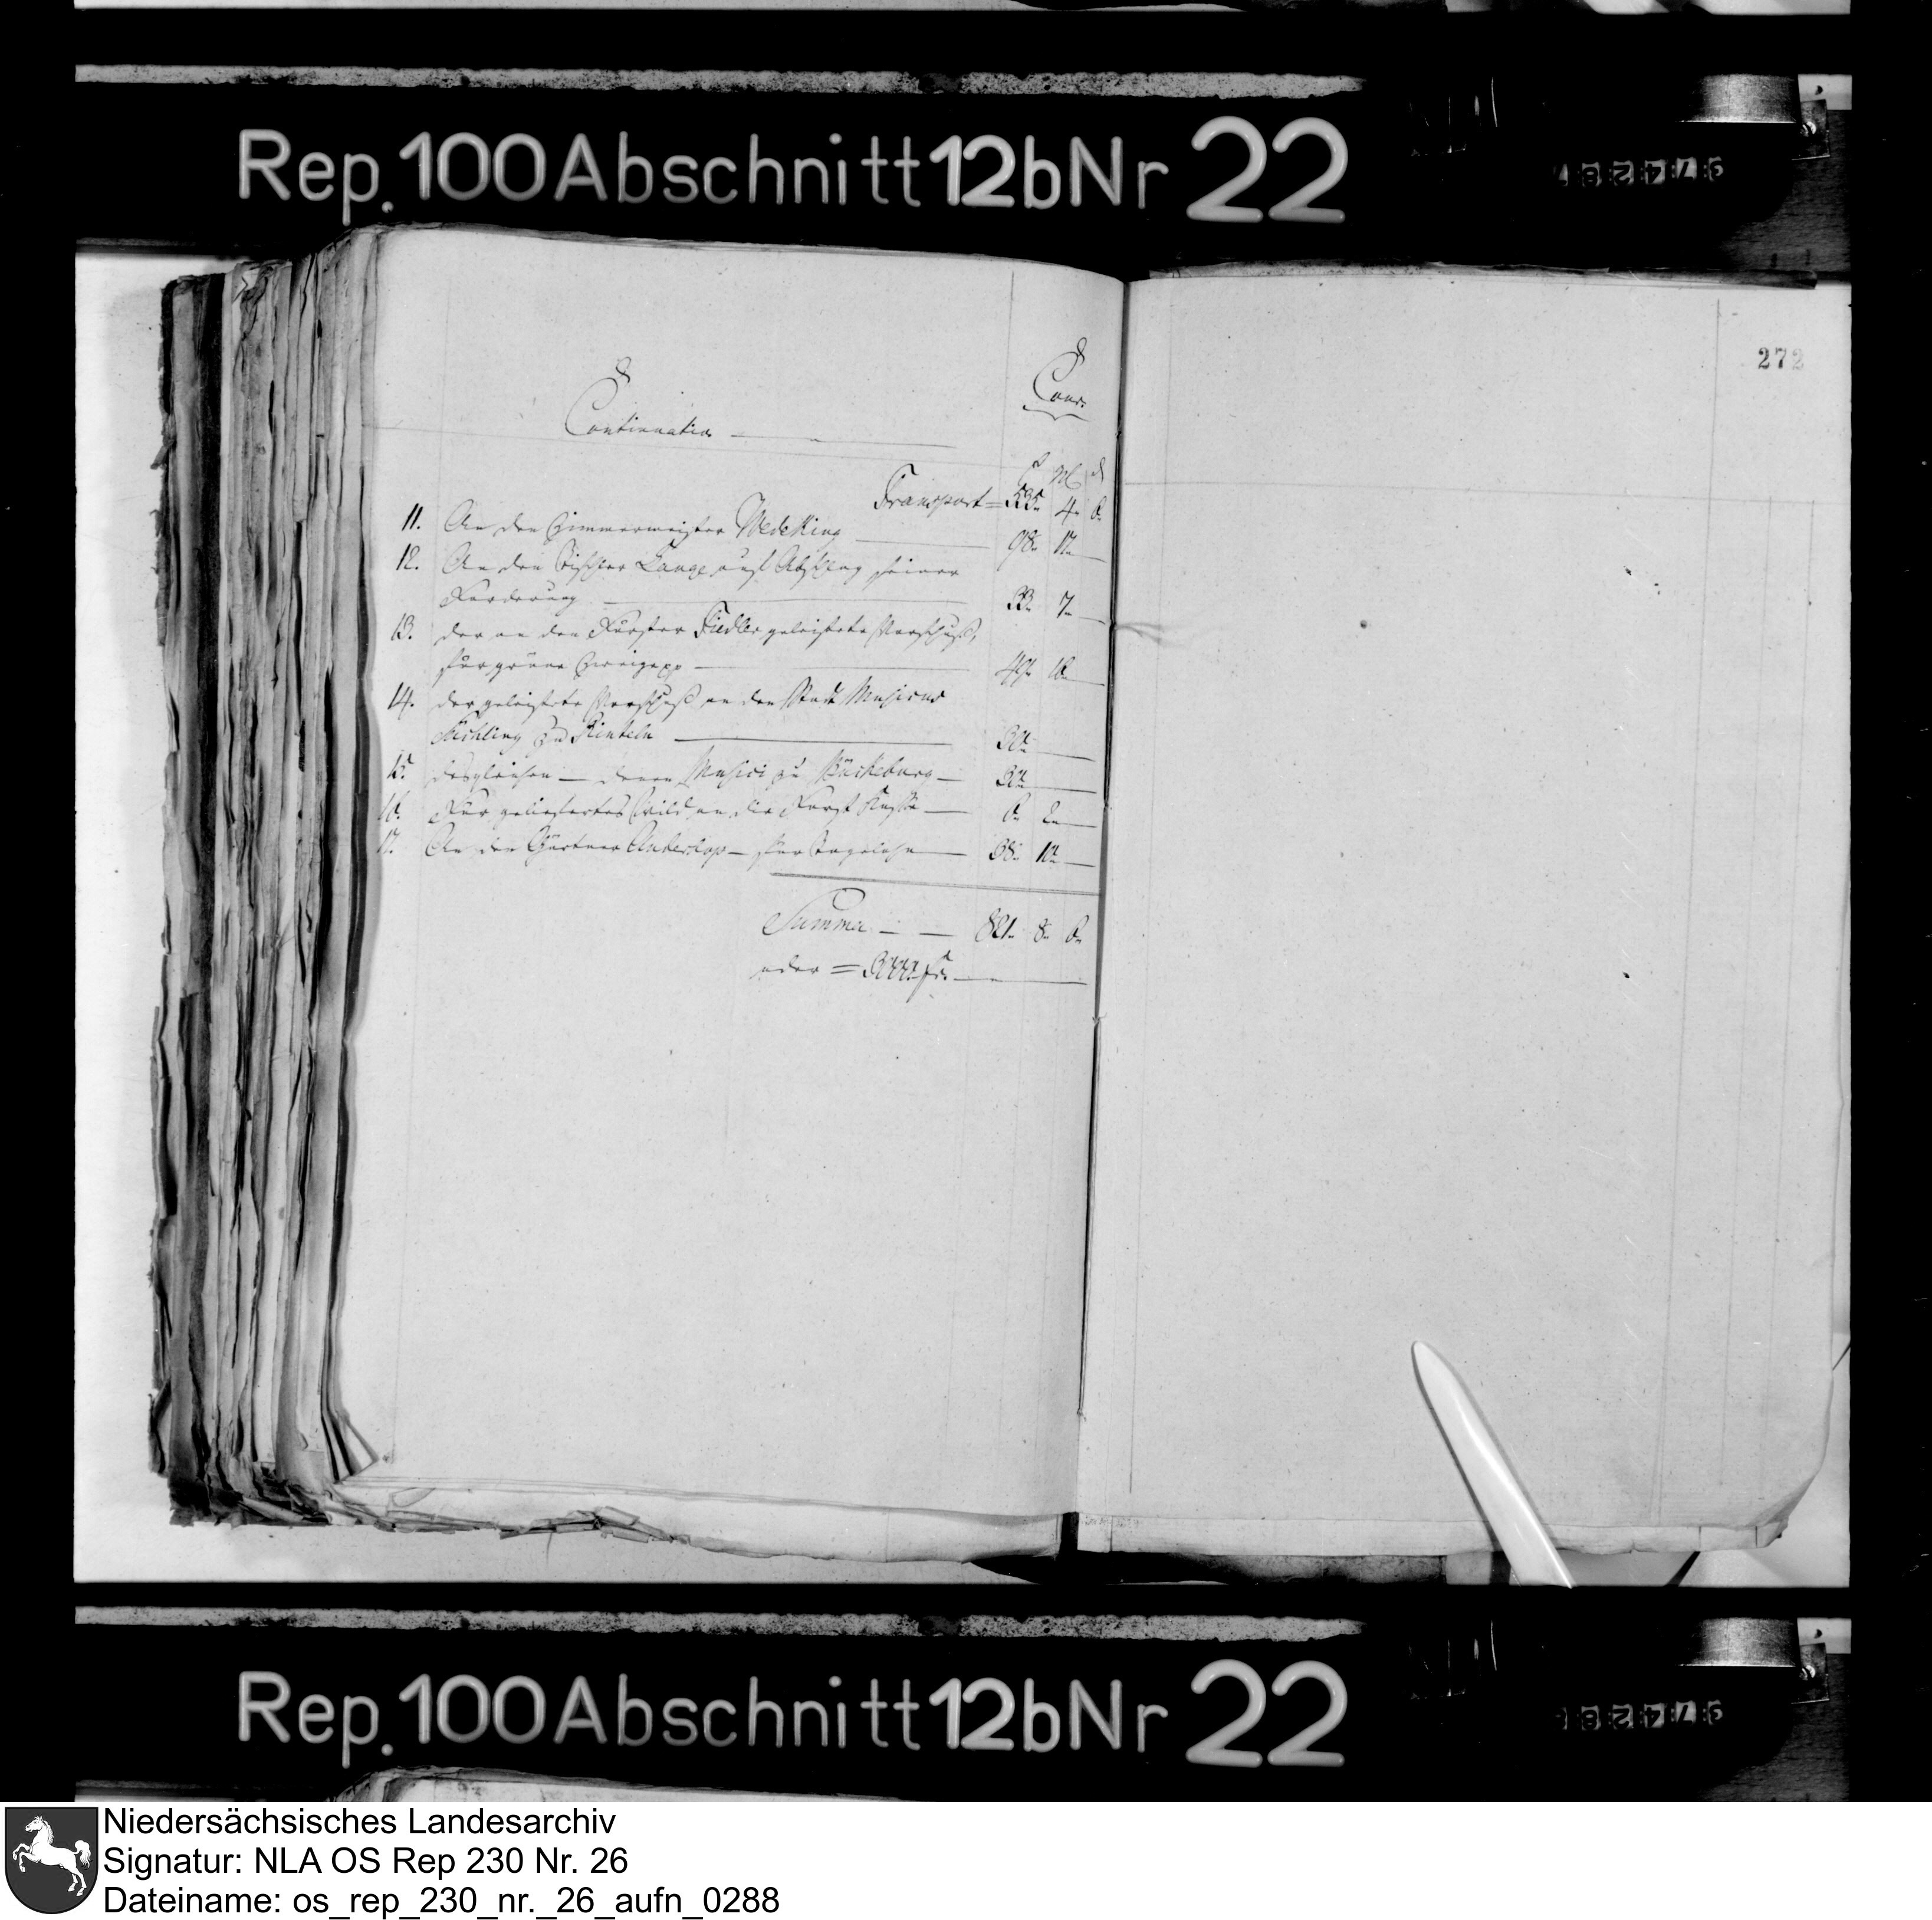 Rep. 100 Abschnitt 12b Nr 22
272
Cour.
Continuatio
Transport = 535. 4. 6.
11. An den Zimmermeister Wedeking 98. 17.
12. An den Tischler Lange auf Abschlag seiner
Forderung 33. 7.
13. der an den Förster Fiedler geleistete Vorschuß,
für grüne Zweige pp 49. 16.
14. der geleistete Vorschuß an den Stadt Musicus
zu Rinteln 30.
15. desgleichen denen Musici zu Bückeburg 30.
16. Für geliefertes Wild an die Forst Kasse 6. 2.
17. An den Gärtner für Tagelohn 38.
Summa 821. 8. 6.
oder =
Rep. 100 Abschnitt 12b Nr 22
Niedersächsisches Landesarchiv
Signatur: NLA OS Rep 230 Nr. 26
Dateiname: os_rep_230_nr._26_aufn_0288